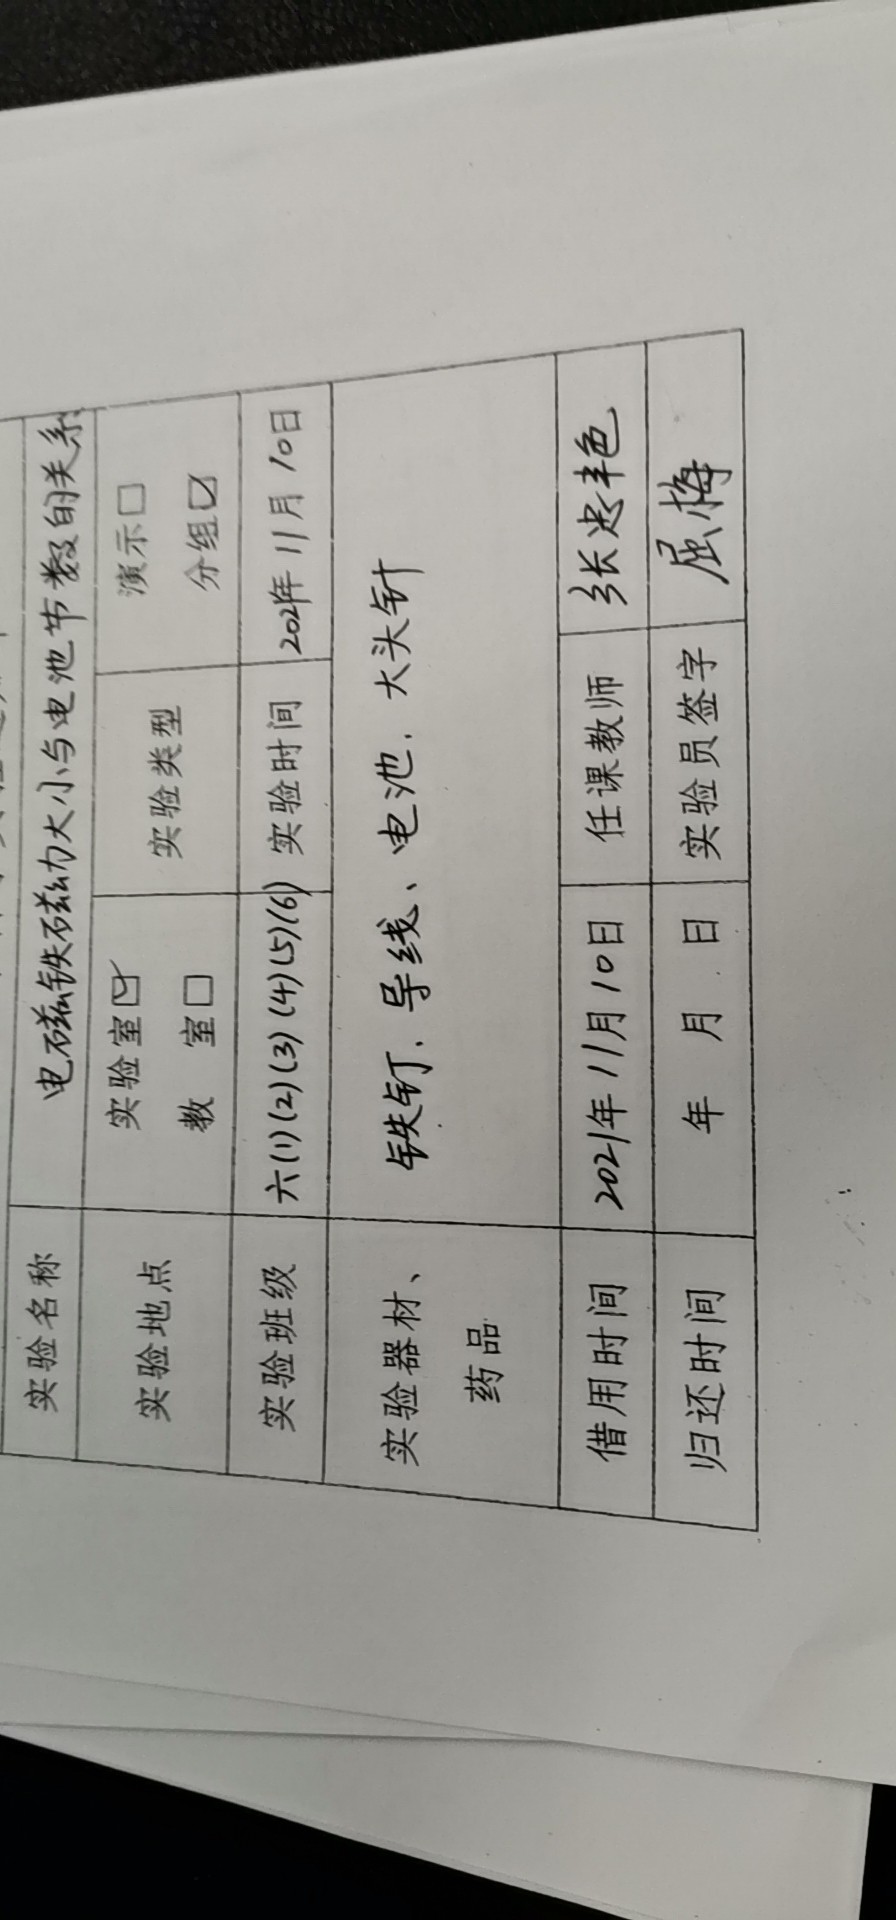 实验名称 电磁铁磁力大小与电池节数的关系
实验地点 实验室☑ 教 室☐ 实验类型 演示☐ 分组☑
实验班级 六(1)(2)(3)(4)(5)(6) 实验时间 2021年11月10日
实验器材、药品 铁钉、导线、电池、大头针
借用时间 2021年11月10日 任课教师 张忠艳
归还时间 年 月 日 实验员签字 屈梅